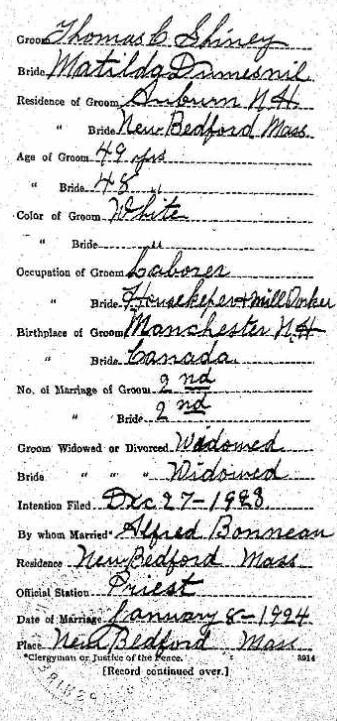 Groom Thomas C Shiney
Bride Matilda Dumesnil
Residence of Groom Auburn N.H.
" Bride New Bedford Mass
Age of Groom 49 yrs
" Bride 48 "
Color of Groom White
" Bride "
Occupation of Groom Laborer
" Bride Housekeper + Mill Worker
Birthplace of Groom Manchester N.H
" Bride Canada
No. of Marriage of Groom 2nd
" Bride 2nd
Groom Widowed or Divorced Widowed
Bride " " " Widowed
Intention Filed Dec 27-1923
By whom Married* Alfred Bonnean
Residence New Bedford Mass
Official Station Priest
Date of Marriage January 8-1924
Place New Bedford Mass
*Clergyman or Justice of the Peace. 3914
[Record continued over.]